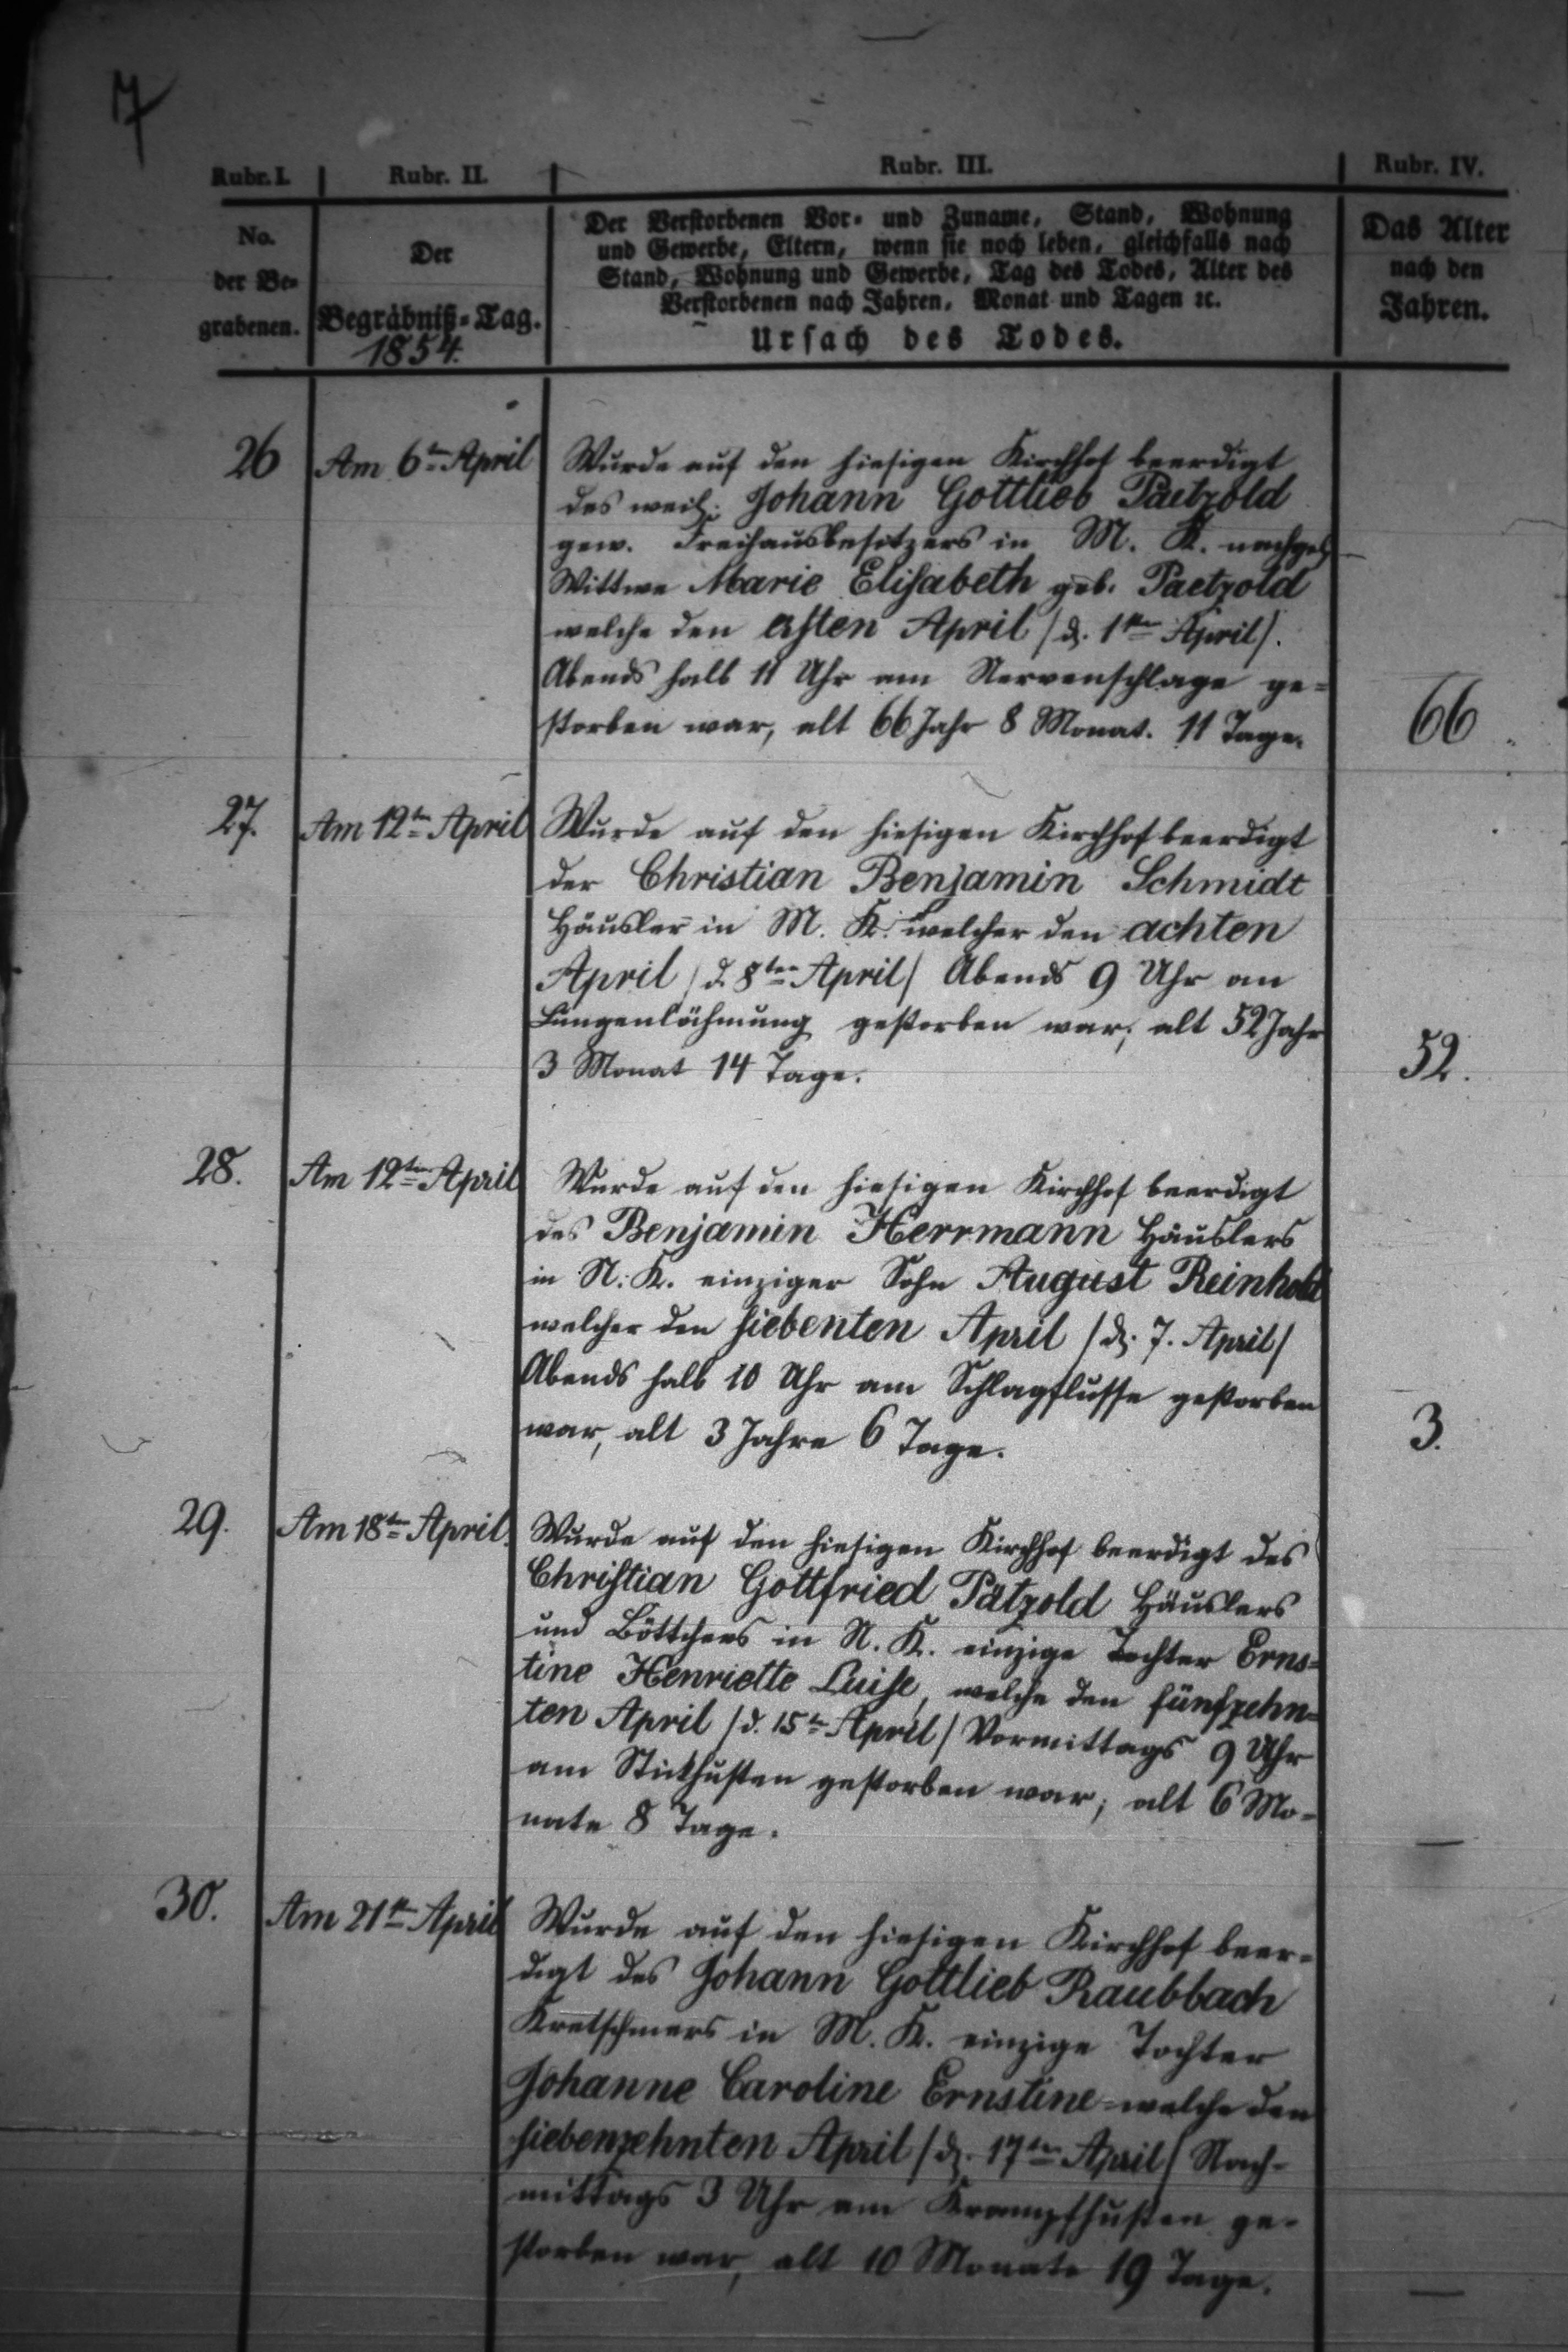 Rubr. I. Rubr. II. Rubr. III. Rubr. IV.
No.
der Be-
grabenen.
Der
Begräbniß-Tag.
1854.
Der Verstorbenen Vor- und Zuname, Stand, Wohnung
und Gewerbe, Eltern, wenn sie noch leben, gleichfalls nach
Stand, Wohnung und Gewerbe, Tag des Todes, Alter des
Verstorbenen nach Jahren, Monat und Tagen ꝛc.
Ursach des Todes.
Das Alter
nach den
Jahren.
26 Am 6ten April Wurde auf den hiesigen Kirchhof beerdigt
des weil. Johann Gottlieb Paetzold
gew. Freihausbesitzers in M. K. nachgel.
Wittwe Marie Elisabeth geb. Paetzold
welche den ersten April /d. 1ten April/.
Abends halb 11 Uhr am Nervenschlage ge=
storben war, alt 66 Jahr 8 Monat. 11 Tage. 66
27. Am 12ten April Wurde auf den hiesigen Kirchhof beerdigt
der Christian Benjamin Schmidt
Häusler in M. K. welcher den achten
April /d. 8ten April/ Abends 9 Uhr an
Lungenlähmung gestorben war; alt 52 Jahr
3 Monat 14 Tage. 52.
28. Am 12ten April Wurde auf den hiesigen Kirchhof beerdigt
des Benjamin Herrmann Häuslers
in N. K. einziger Sohn August Reinhold
welcher den siebenten April /d. 7. April/
Abends halb 10 Uhr am Schlagflusse gestorben
war, alt 3 Jahre 6 Tage. 3.
29. Am 18ten April. Wurde auf den hiesigen Kirchhof beerdigt des
Christian Gottfried Pätzold Häuslers
und Böttchers in N. K. einzige Tochter Erns=
tine Henriette Luise, welche den fünfzehn=
ten April /d. 15ten April/ Vormittags 9 Uhr
am Stickhusten gestorben war; alt 6 Mo=
nate 8 Tage. —
30. Am 21ten April Wurde auf den hiesigen Kirchhof beer=
digt des Johann Gottlieb Raubbach
Kretschmers in M. K. einzige Tochter
Johanne Caroline Ernstine welche den
siebenzehnten April /d. 17ten April/ Nach-
mittags 3 Uhr am Krampfhusten ge-
storben war, alt 10 Monate 19 Tage. —